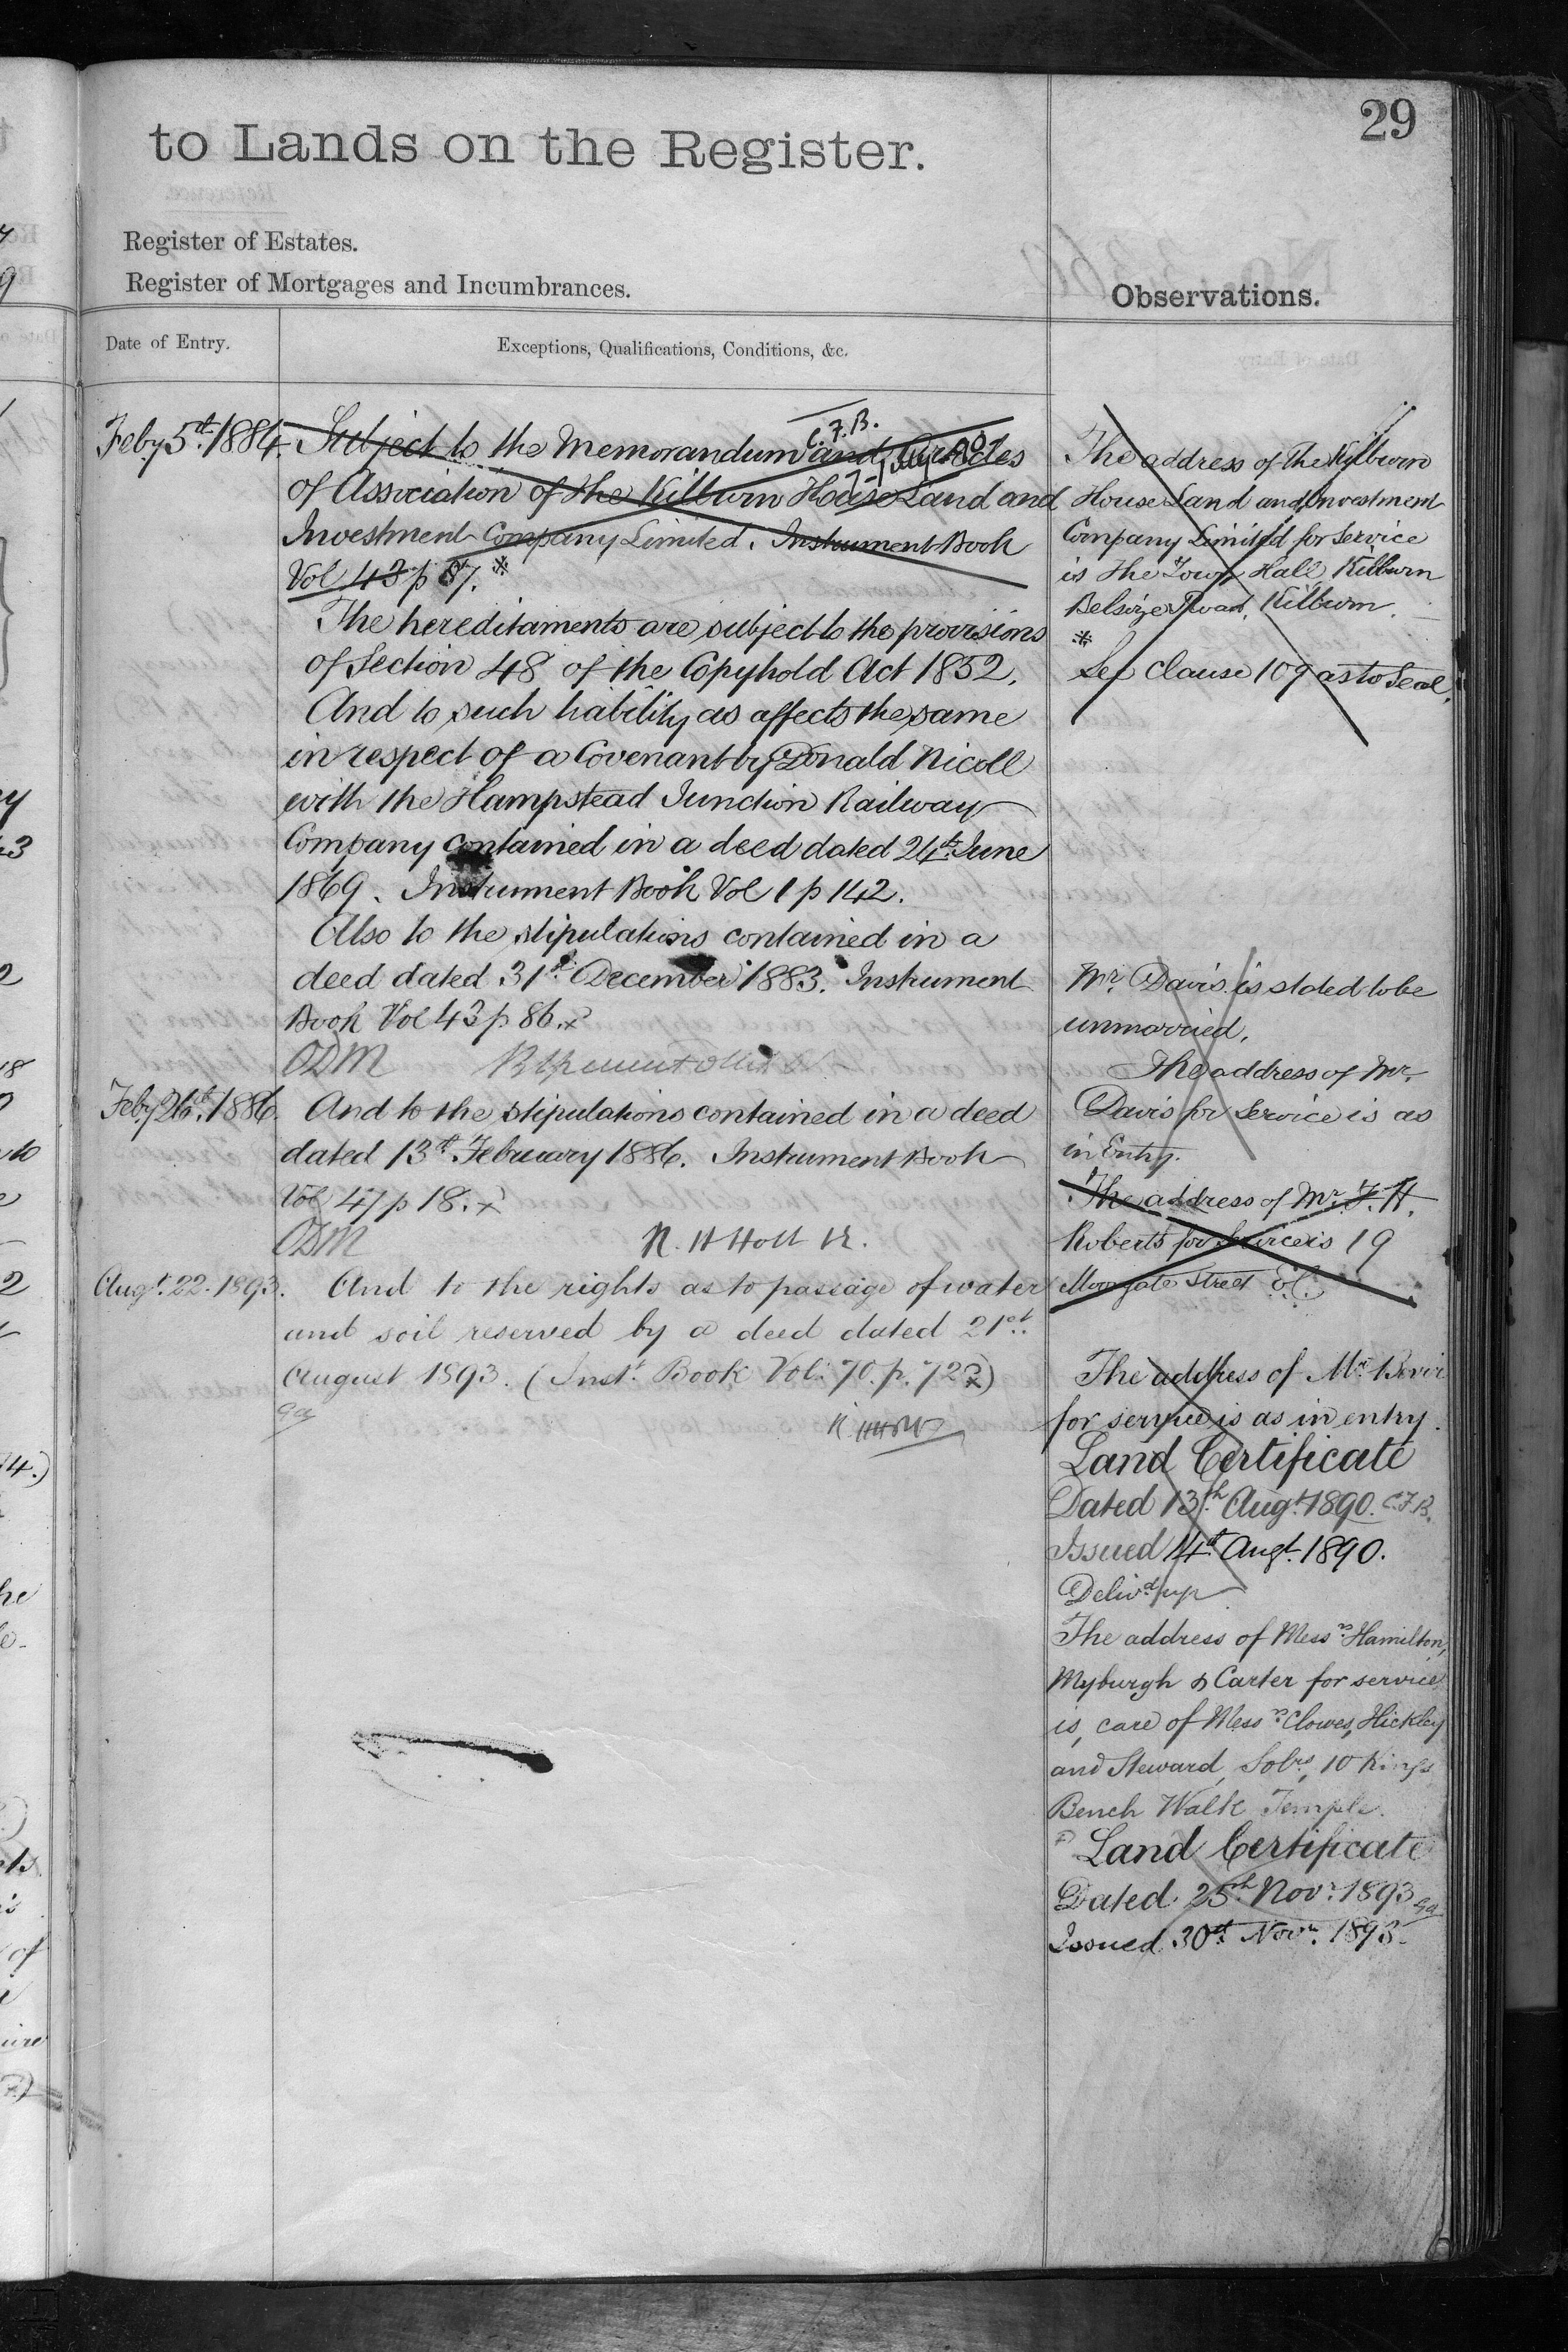 29
to Lands on the Register.
Register of Estates.
Register of Mortgages and Incumbrances.
Observations.
Date of Entry.
Exceptions, Qualifications, Conditions, &c.
C.F.B.
Feby 5th 1884. Subject to the Memorandum and Articles
of Association of the Kilburn House Land and
Investment Company Limited. Instrument Book
Vol 43 p 87. *
The hereditaments are subject to the provisions
of Section 48 of the Copyhold Act 1852.
And to such liability as affects the same
in respect of a Covenant by Donald Nicoll
with the Hampstead Junction Railway
Company contained in a deed dated 24th June
1869. Instrument Book Vol 1 p 142.
Also to the stipulations contained in a
deed dated 31st December 1883. Instrument
Book Vol 43 p 86.
ODM
Feby 26th 1886. And to the stipulations contained in a deed
dated 13th February 1886. Instrument Book
Vol 47 p 18.
ODM N. H Holt
Augt. 22. 1893. And to the rights as to passage of water
and soil reserved by a deed dated 21st
August 1893. (Inst. Book Vol: 70. p. 72)
ga
The address of The Kilburn
House Land and Investment
Company Limited for service
is the Town Hall Kilburn
Belsize Road, Kilburn.
*
See Clause 109 as to Seal.
Mr. Davis is stated to be
unmarried.
The address of Mr.
Davis for Service is as
in Entry.
The address of Mr. F. H.
Roberts for Service is 19
Moorgate Street E.C.
The address of Mr.
for service is as in entry.
Land Certificate
Dated 13th Augt. 1890. C.F.B.
Issued 14th Augt. 1890.
Delivd. up
The address of Messrs. Hamilton,
Myburgh & Carter for service
is, care of Messrs. Clowes, Hickley
and Steward, Solrs, 10 Kings
Bench Walk Temple.
Land Certificate
Dated 25th Novr. 1893 ga
Issued 30th Novr. 1893.